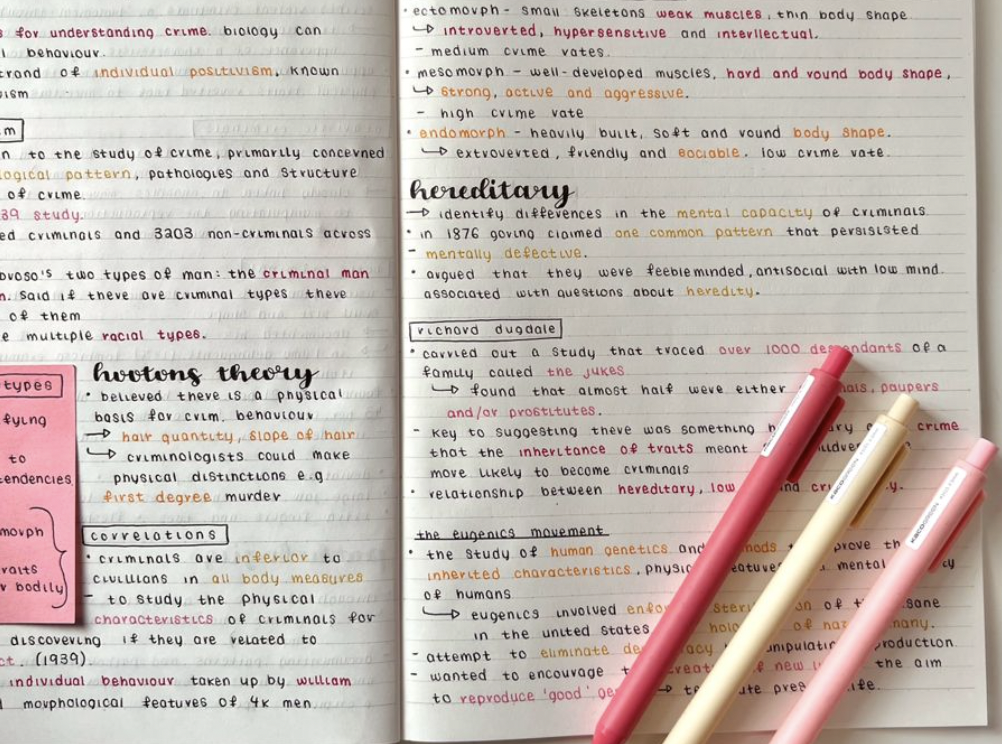 s for understanding crime. biology can
l behaviour.
trand of individual positivism, known
ism
m
n to the study of crime, primarily concerned
logical pattern, pathologies and structure
of crime.
39 study.
ed criminals and 3203 non-criminals across
ovoso's two types of man: the criminal man
n. said if there are criminal types there
of them
e multiple racial types.
types
fying
to
tendencies
morph
raits
r bodily
hootons theory
• believed there is a physical
basis for crim. behaviour
→ hair quantity, slope of hair
↳ criminologists could make
physical distinctions e.g
first degree murder
correlations
• criminals are inferior to
civillians in all body measures
- to study the physical
characteristics of criminals for
discovering if they are related to
ct. (1939).
individual behaviour taken up by william
l movphological features of 4k men.
• ectomorph - small skeletons weak muscles, thin body shape
↳ introverted, hypersensitive and interllectual.
- medium crime rates.
• mesomorph - well-developed muscles, hard and round body shape,
↳ strong, active and aggressive.
- high crime rate
• endomorph - heavily built, soft and round body shape.
↳ extroverted, friendly and sociable. low crime rate.
hereditary
→ identify differences in the mental capacity of criminals.
• in 1876 goring claimed one common pattern that persisisted
- mentally defective.
• argued that they were feebleminded, antisocial with low mind.
associated with questions about heredity.
richard dugdale
• carried out a study that traced over 1000 descendants of a
family called the jukes
↳ found that almost half were either paupers
and/or prostitutes.
- key to suggesting there was something crime
that the inheritance of traits meant
more likely to become criminals
• relationship between hereditary, low and
the eugenics movement
• the study of human genetics and
inherited characteristics, mental
of humans
↳ eugenics involved of
in the united states of
- attempt to eliminate
- wanted to encourage of new the aim
to reproduce 'good' life.
kacogreen
kacogreen